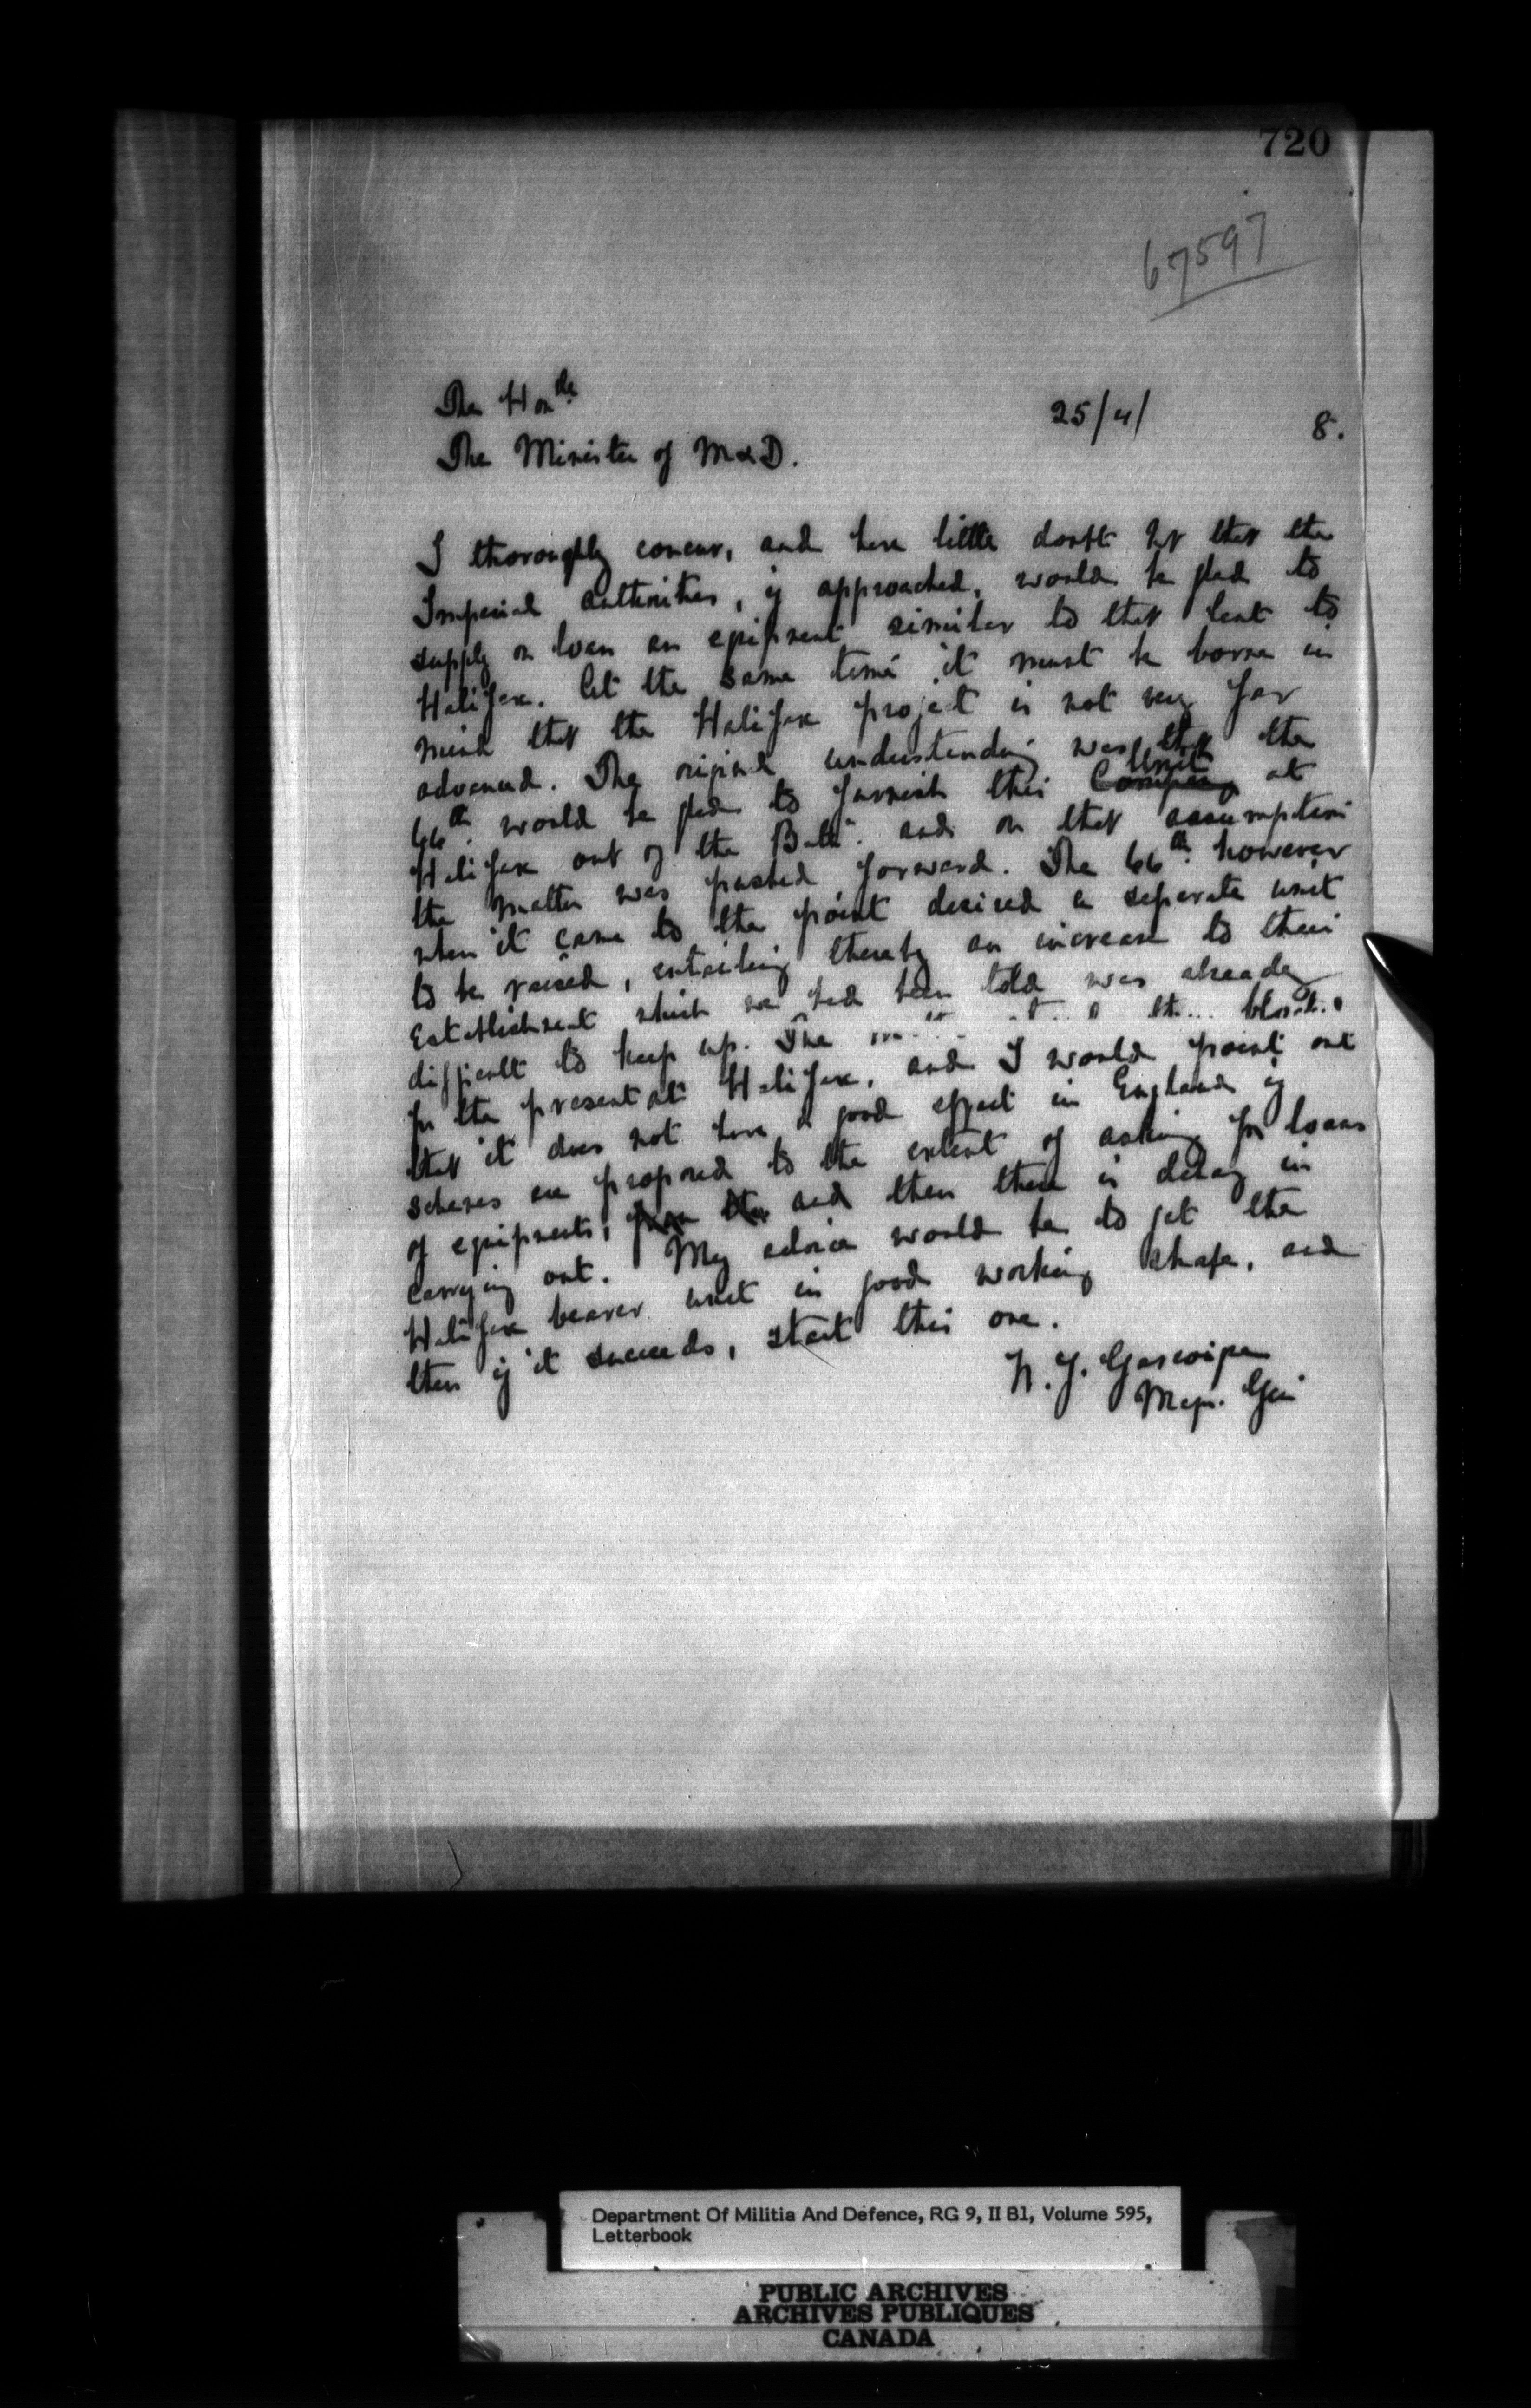 720
67597
The Honble
25/4/ 8.
The Minister of M & D.
I thoroughly concur, and have little doubt but that the
Imperial authorities, if approached, would be glad to
supply on loan an equipment similar to that lent to
Halifax. At the same time it must be borne in
mind that the Halifax project is not very far
advanced. The original understanding was that the
66th. would be glad to furnish this Unit at
Halifax out of the Battn. and on that assumption
the matter was pushed forward. The 66th however
when it came to the point desired a separate unit
to be raised, entailing thereby an increase to their
Establishment which we had been told was already
difficult to keep up. The
for the present at Halifax, and I would point out
that it does not have a good effect in England if
schemes are proposed to the extent of asking for loans
of equipments, and then there is delay in
carrying out. My advice would be to get the
Halifax bearer unit in good working shape, and
then if it succeeds, start this one.
W. J. Gascoigne
Maj. Gen
Department Of Militia And Defence, RG 9, II B1, Volume 595,
Letterbook
PUBLIC ARCHIVES
ARCHIVES PUBLIQUES
CANADA